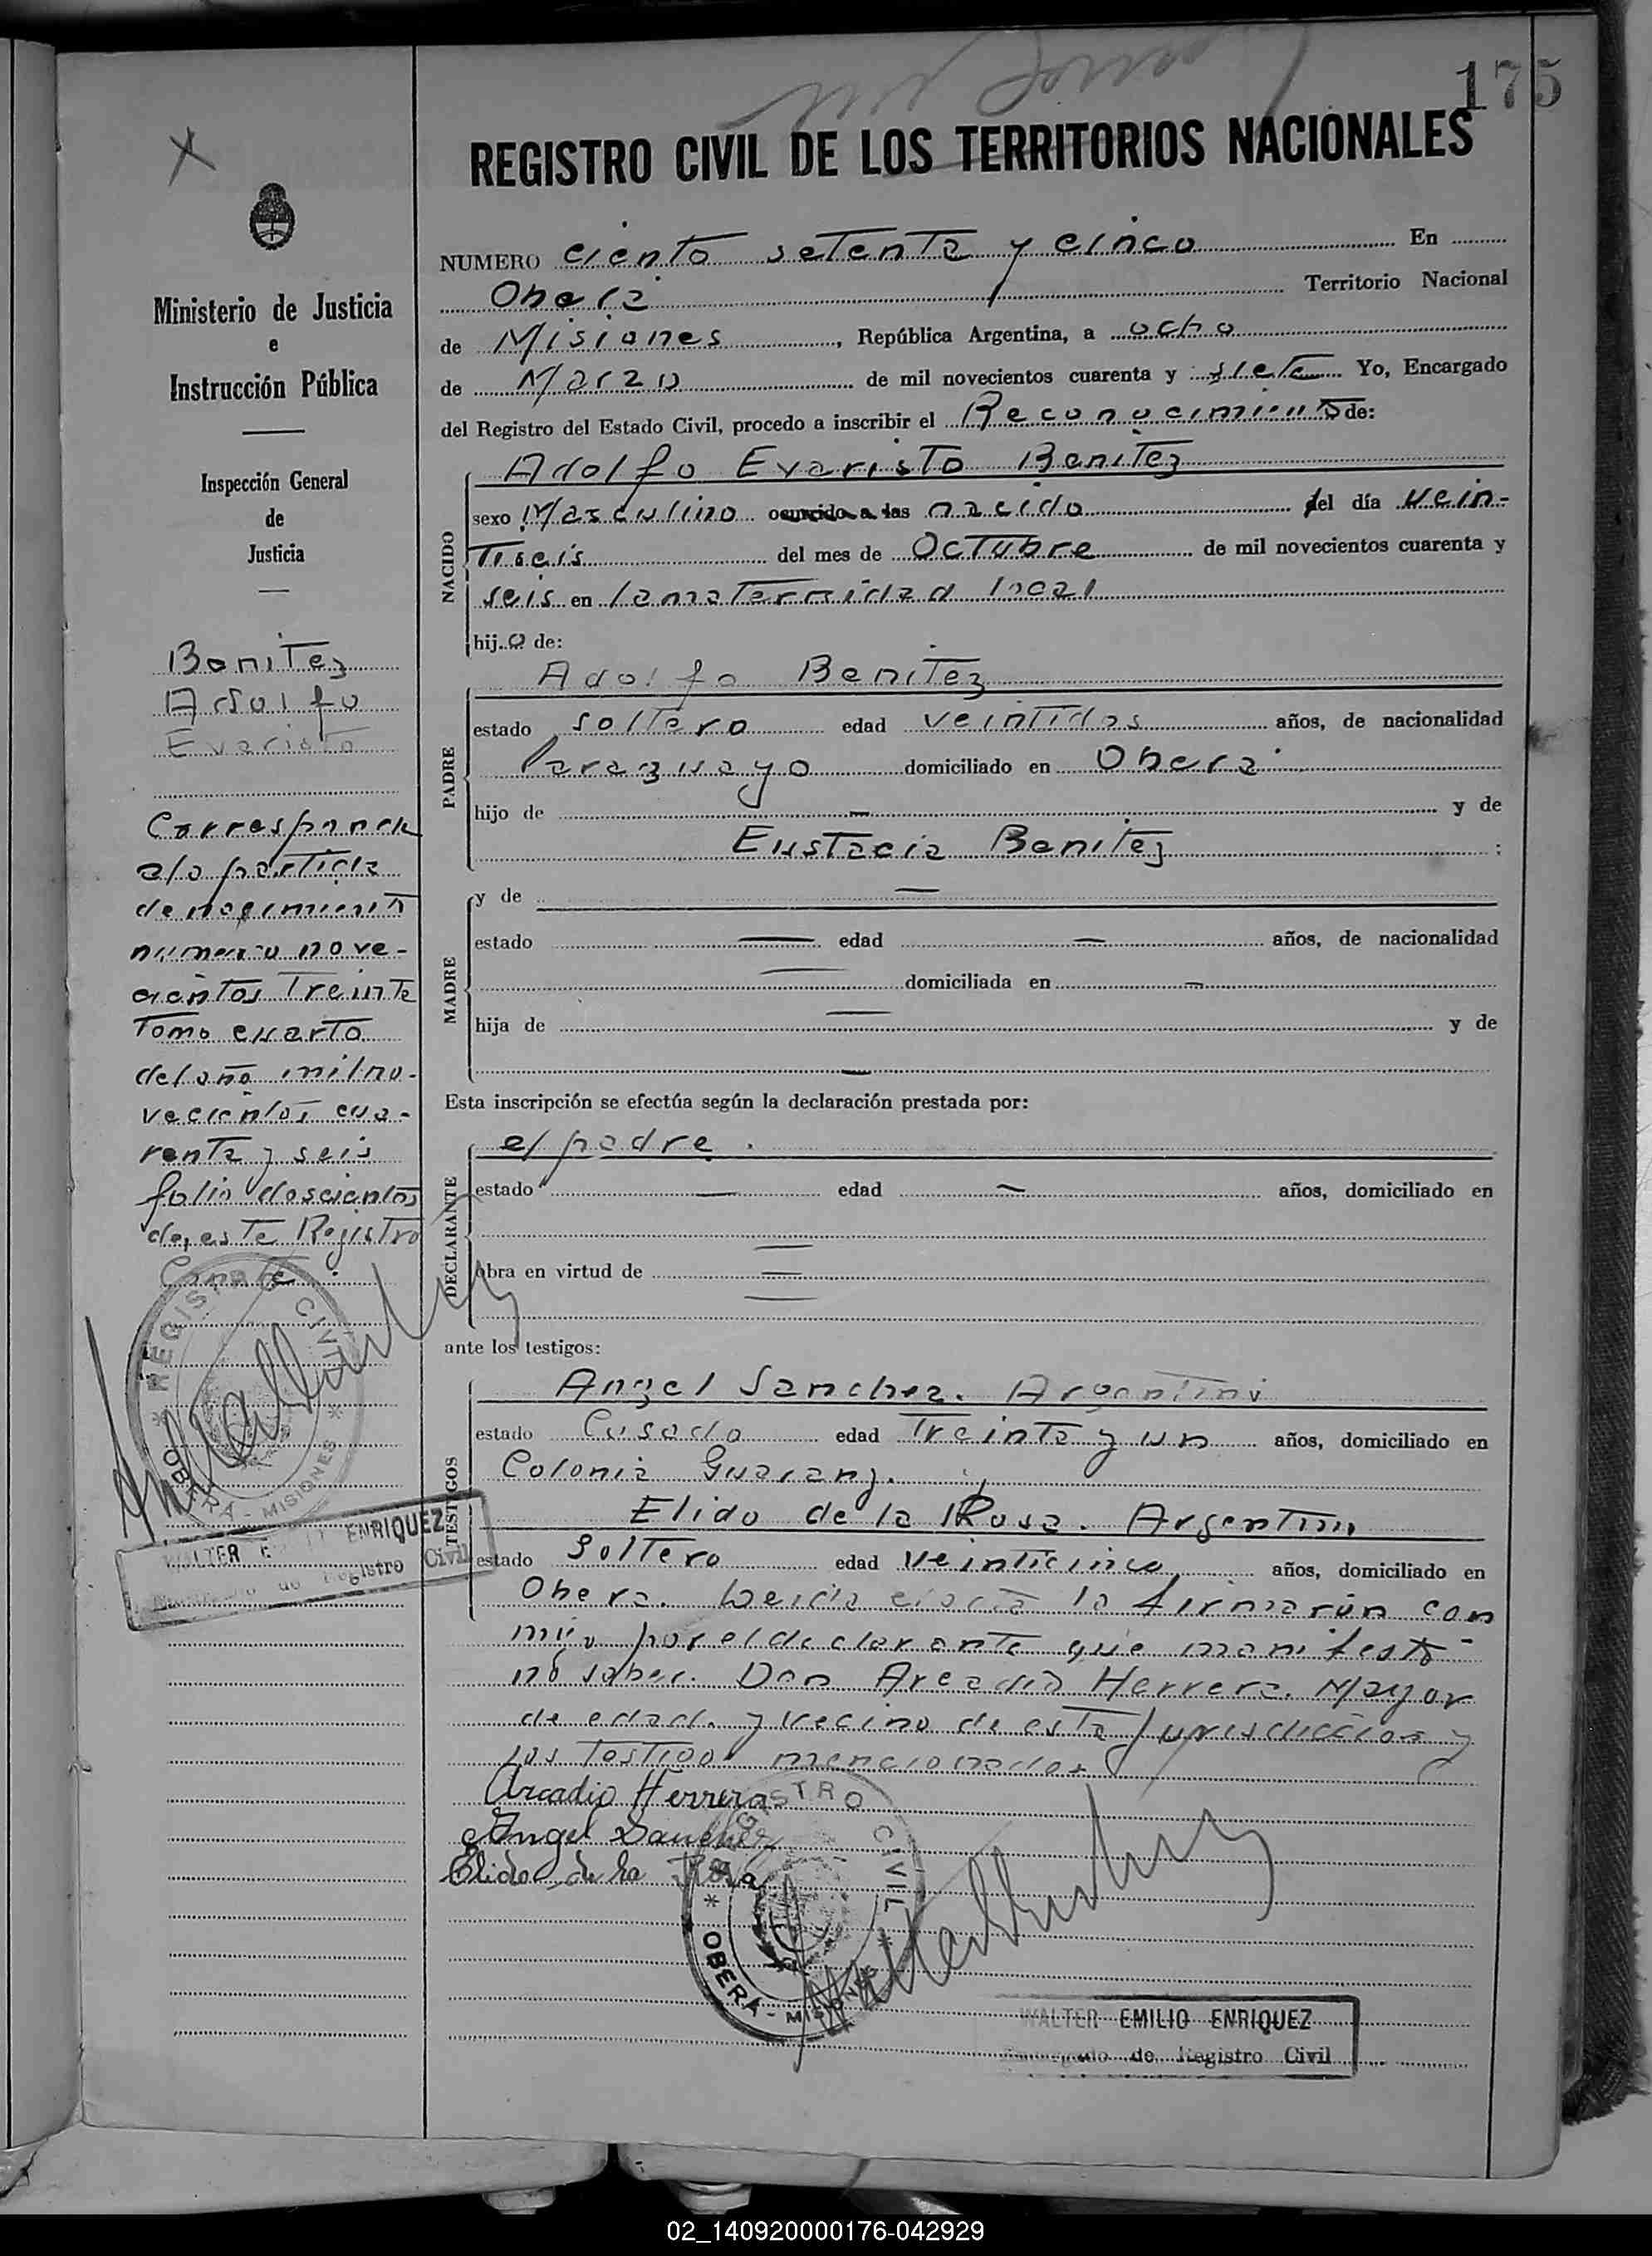 175
REGISTRO CIVIL DE LOS TERRITORIOS NACIONALES
Ministerio de Justicia
e
Instrucción Pública
Inspección General
de
Justicia
Benitez
Adolfo
Evaristo
Corresponde
a la partida
de nacimiento
numero nove-
cientos Treinta
Tomo cuarto
del año mil no-
vecientos cua-
renta y seis
folio doscientos
de este Registro
Conste.
REGISTRO CIVIL
OBERÁ - MISIONES
WALTER EMILIO ENRIQUEZ
Encargado de Registro Civil
NUMERO ciento setenta y cinco En
Oberá Territorio Nacional
de Misiones, República Argentina, a ocho
de Marzo de mil novecientos cuarenta y siete Yo, Encargado
del Registro del Estado Civil, procedo a inscribir el Reconocimiento de:
NACIDO
Adolfo Evaristo Benitez
sexo Masculino ocurrido a las nacido del día vein-
tiseis del mes de Octubre de mil novecientos cuarenta y
seis en la maternidad local
hijo de:
PADRE
Adolfo Benitez
estado soltero edad veintidos años, de nacionalidad
Paraguayo domiciliado en Oberá
hijo de — y de
Eustacia Benitez
MADRE
y de —
estado — edad — años, de nacionalidad
— domiciliada en —
hija de — y de
—
Esta inscripción se efectúa según la declaración prestada por:
DECLARANTE
el padre.
estado — edad — años, domiciliado en
—
obra en virtud de —
—
ante los testigos:
TESTIGOS
Angel Sanchez. Argentino
estado Casado edad Treinta y un años, domiciliado en
Colonia Guarany.
Elido de la Rosa. Argentino
estado Soltero edad veinticinco años, domiciliado en
Obera. Leida el acta la firmarón con
migo por el declarante que manifestó
no saber. Don Arcadio Herrera. Mayor
de edad. y vecino de esta Jurisdiccion y
los Testigos mencionados
Arcadio Herrera
Angel Sanchez
Elido de la Rosa
REGISTRO CIVIL
OBERÁ - MISIONES
WALTER EMILIO ENRIQUEZ
Encargado de Registro Civil
02_140920000176-042929